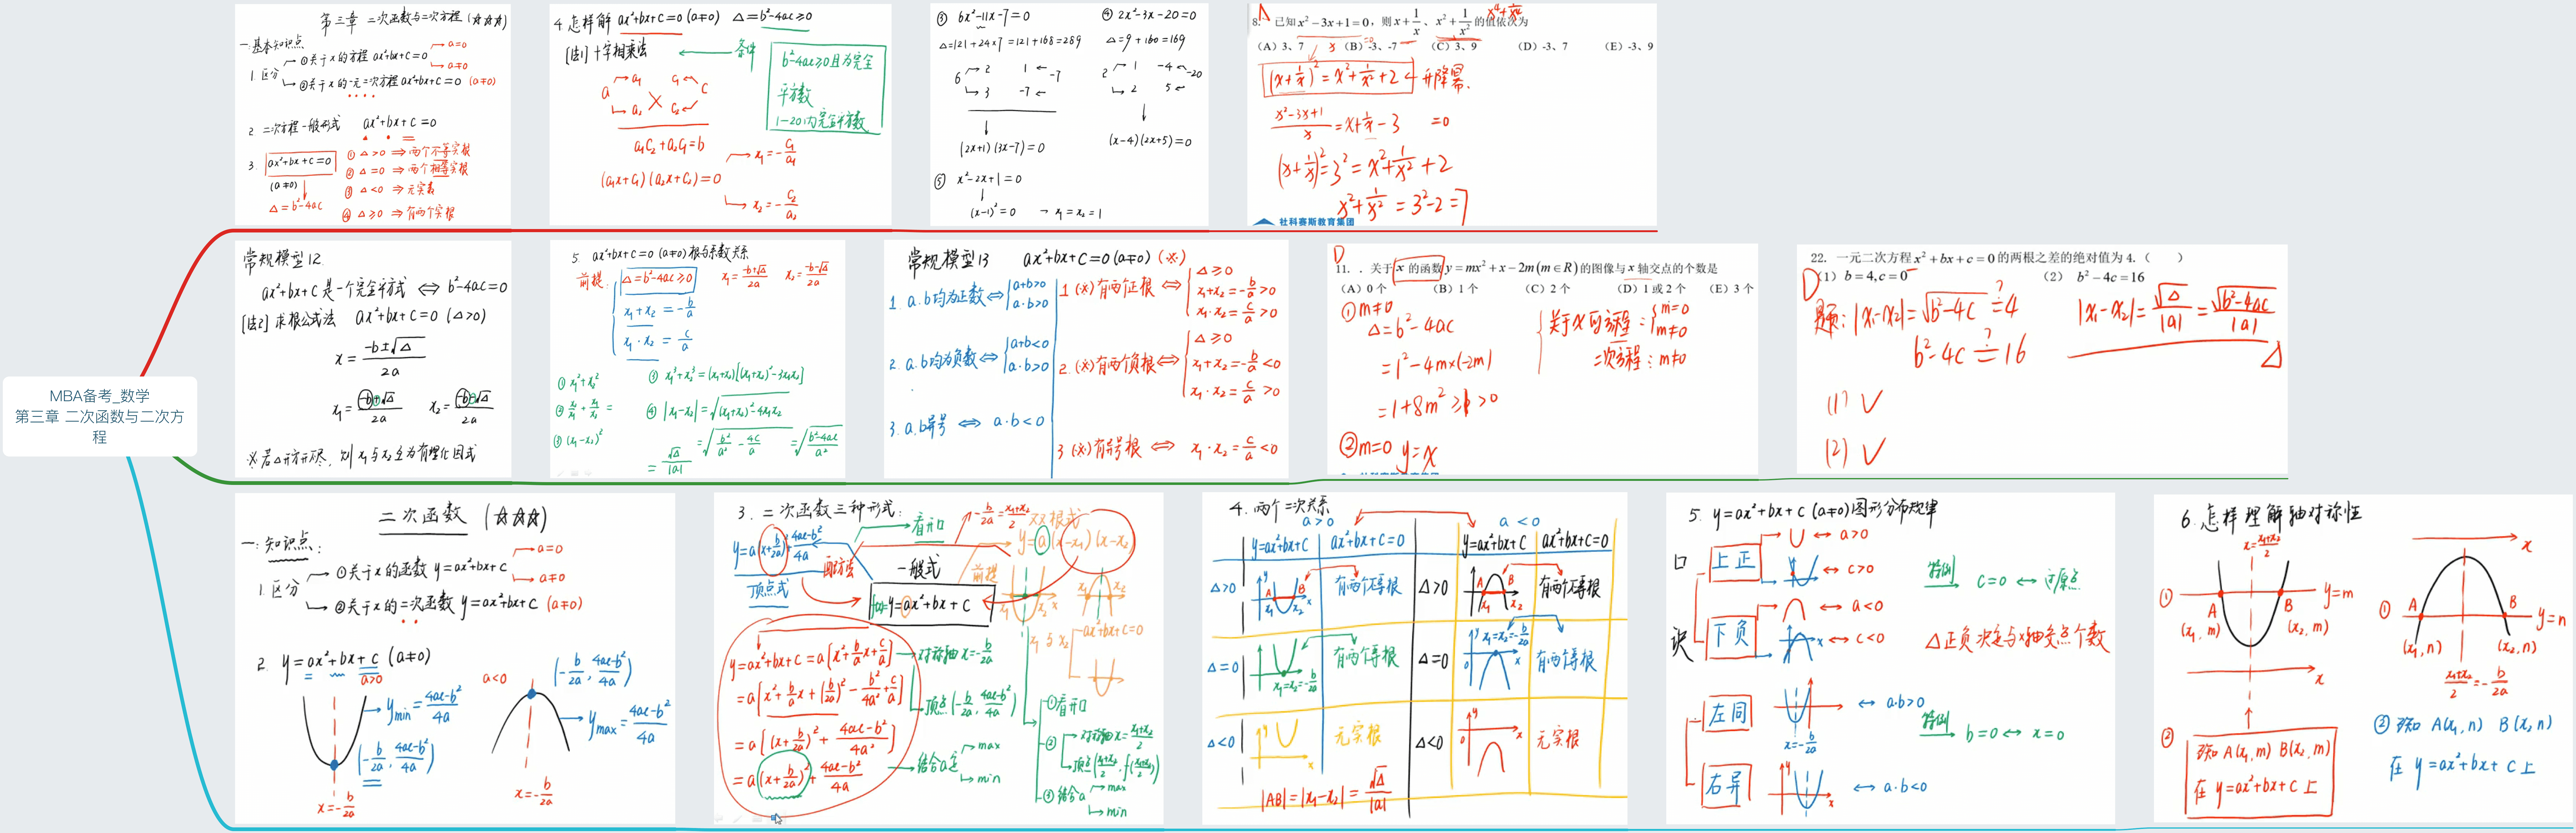 MBA备考_数学
第三章 二次函数与二次方
程
第三章 二次函数与二次方程 (☆☆☆)
一.基本知识点
1.区分
①关于x的方程 ax²+bx+c=0
a=0
a≠0
②关于x的一元二次方程 ax²+bx+c=0 (a≠0)
2 二次方程一般形式 ax²+bx+c=0
3. ax²+bx+c=0
(a≠0)
Δ=b²-4ac
① Δ>0 ⇒两个不等实根
② Δ=0 ⇒两个相等实根
③ Δ<0 ⇒无实根
④ Δ≥0 ⇒有两个实根
4.怎样解 ax²+bx+c=0 (a≠0) Δ=b²-4ac≥0
[法1]十字相乘法
条件
b²-4ac≥0且为完全
平方数
1-20内完全平方数
a a₁ c₁ c
a₂ c₂
a₁c₂+a₂c₁=b
(a₁x+c₁)(a₂x+c₂)=0
x₁=-c₁/a₁
x₂=-c₂/a₂
③ 6x²-11x-7=0
Δ=121+24×7=121+168=289
6 2 1 -7
3 -7
(2x+1)(3x-7)=0
④ 2x²-3x-20=0
Δ=9+160=169
2 1 -4 -20
2 5
(x-4)(2x+5)=0
⑤ x²-2x+1=0
(x-1)²=0 → x₁=x₂=1
8. A 已知 x²-3x+1=0，则 x+1/x、x²+1/x² 的值依次为
x⁴+1/x⁴
(A) 3、7 (B) -3、-7 (C) 3、9 (D) -3、7 (E) -3、9
(x+1/x)²=x²+1/x²+2 ← 升降幂.
(x²-3x+1)/x=x+1/x-3 =0
(x+1/x)²=3²=x²+1/x²+2
x²+1/x²=3²-2=7
社科赛斯教育集团
常规模型12.
ax²+bx+c是一个完全平方式 ⇔ b²-4ac=0
[法2]求根公式法 ax²+bx+c=0 (Δ>0)
x=(-b±√Δ)/2a
x₁=(-b+√Δ)/2a x₂=(-b-√Δ)/2a
※若Δ开方开不尽，则x₁与x₂互为有理化因式
5. ax²+bx+c=0 (a≠0)根与系数关系
前提: Δ=b²-4ac≥0 x₁=(-b+√Δ)/2a x₂=(-b-√Δ)/2a
x₁+x₂=-b/a
x₁·x₂=c/a
① x₁²+x₂²
③ x₁³+x₂³=(x₁+x₂)[(x₁+x₂)²-3x₁x₂]
④ |x₁-x₂|=√((x₁+x₂)²-4x₁x₂)
③ (x₁-x₂)²
=√(b²/a²-4c/a)=√((b²-4ac)/a²)
=√Δ/|a|
常规模型13 ax²+bx+c=0(a≠0) (※)
1. a.b均为正数⇔{a+b>0 a·b>0
1.(※)有两正根⇔{Δ≥0 x₁+x₂=-b/a>0 x₁·x₂=c/a>0
2. a.b均为负数⇔{a+b<0 a·b>0
2.(※)有两个负根⇔{Δ≥0 x₁+x₂=-b/a<0 x₁·x₂=c/a>0
3. a,b异号 ⇔ a·b<0
3(※)有异号根 ⇔ x₁·x₂=c/a<0
D
11. . 关于 x 的函数 y=mx²+x-2m(m∈R)的图像与 x 轴交点的个数是
(A) 0 个 (B) 1 个 (C) 2 个 (D) 1 或 2 个 (E) 3 个
①m≠0
Δ=b²-4ac
=1²-4m×(-2m)
=1+8m²≥1>0
②m=0 y=x
关于x的方程:{m=0 m≠0
二次方程:m≠0
22. 一元二次方程 x²+bx+c=0 的两根之差的绝对值为 4.（ ）
D (1) b=4,c=0 (2) b²-4c=16
题: |x₁-x₂|=√(b²-4c)=4 ?
b²-4c=16 ?
|x₁-x₂|=√Δ/|a|=√(b²-4ac)/|a|
(1) √
(2) √
二次函数 (☆☆☆)
一.知识点:
1.区分
①关于x的函数 y=ax²+bx+c
a=0
a≠0
②关于x的二次函数 y=ax²+bx+c (a≠0)
2. y=ax²+bx+c (a≠0)
a>0
y min=(4ac-b²)/4a
(-b/2a, (4ac-b²)/4a)
x=-b/2a
a<0
(-b/2a, (4ac-b²)/4a)
y max=(4ac-b²)/4a
x=-b/2a
3. 二次函数三种形式:
y=a(x+b/2a)²+(4ac-b²)/4a
顶点式
配方法
看开口
-b/2a=(x₁+x₂)/2
双根式
y=a(x-x₁)(x-x₂)
一般式
前提
f(x)=y=ax²+bx+c
x₁与x₂ ax²+bx+c=0
y=ax²+bx+c=a[x²+b/a x+c/a]
=a[x²+b/a x+(b/2a)²-b²/4a²+c/a]
=a[(x+b/2a)²+(4ac-b²)/4a²]
=a(x+b/2a)²+(4ac-b²)/4a
对称轴x=-b/2a
顶点(-b/2a, (4ac-b²)/4a)
结合a定 max
min
①看开口
② 对称轴x=(x₁+x₂)/2
顶点((x₁+x₂)/2, f((x₁+x₂)/2))
③结合a max
min
4. 两个二次关系
a>0 a<0
y=ax²+bx+c ax²+bx+c=0 y=ax²+bx+c ax²+bx+c=0
Δ>0 A B x₁ x₂ x 有两不等根 Δ>0 A B x₁ x₂ 有两不等根
Δ=0 x₁=x₂=-b/2a 有两等根 Δ=0 x₁=x₂=-b/2a 有两等根
Δ<0 无实根 Δ<0 无实根
|AB|=|x₁-x₂|=√Δ/|a|
5. y=ax²+bx+c (a≠0)图形分布规律
口
诀
上正 ↔ a>0
↔ c>0
特例 c=0 ↔ 过原点
下负 ↔ a<0
↔ c<0
Δ正负决定与x轴交点个数
左同 ↔ a·b>0
x=-b/2a
特例 b=0 ↔ x=0
右异 ↔ a·b<0
6.怎样理解轴对称性
x=(x₁+x₂)/2
① A B y=m
(x₁,m) (x₂,m)
x
② 已知 A(x₁,m) B(x₂,m)
在 y=ax²+bx+c上
x
① A B y=n
(x₁,n) (x₂,n)
(x₁+x₂)/2=-b/2a
②已知 A(x₁,n) B(x₂,n)
在 y=ax²+bx+c上